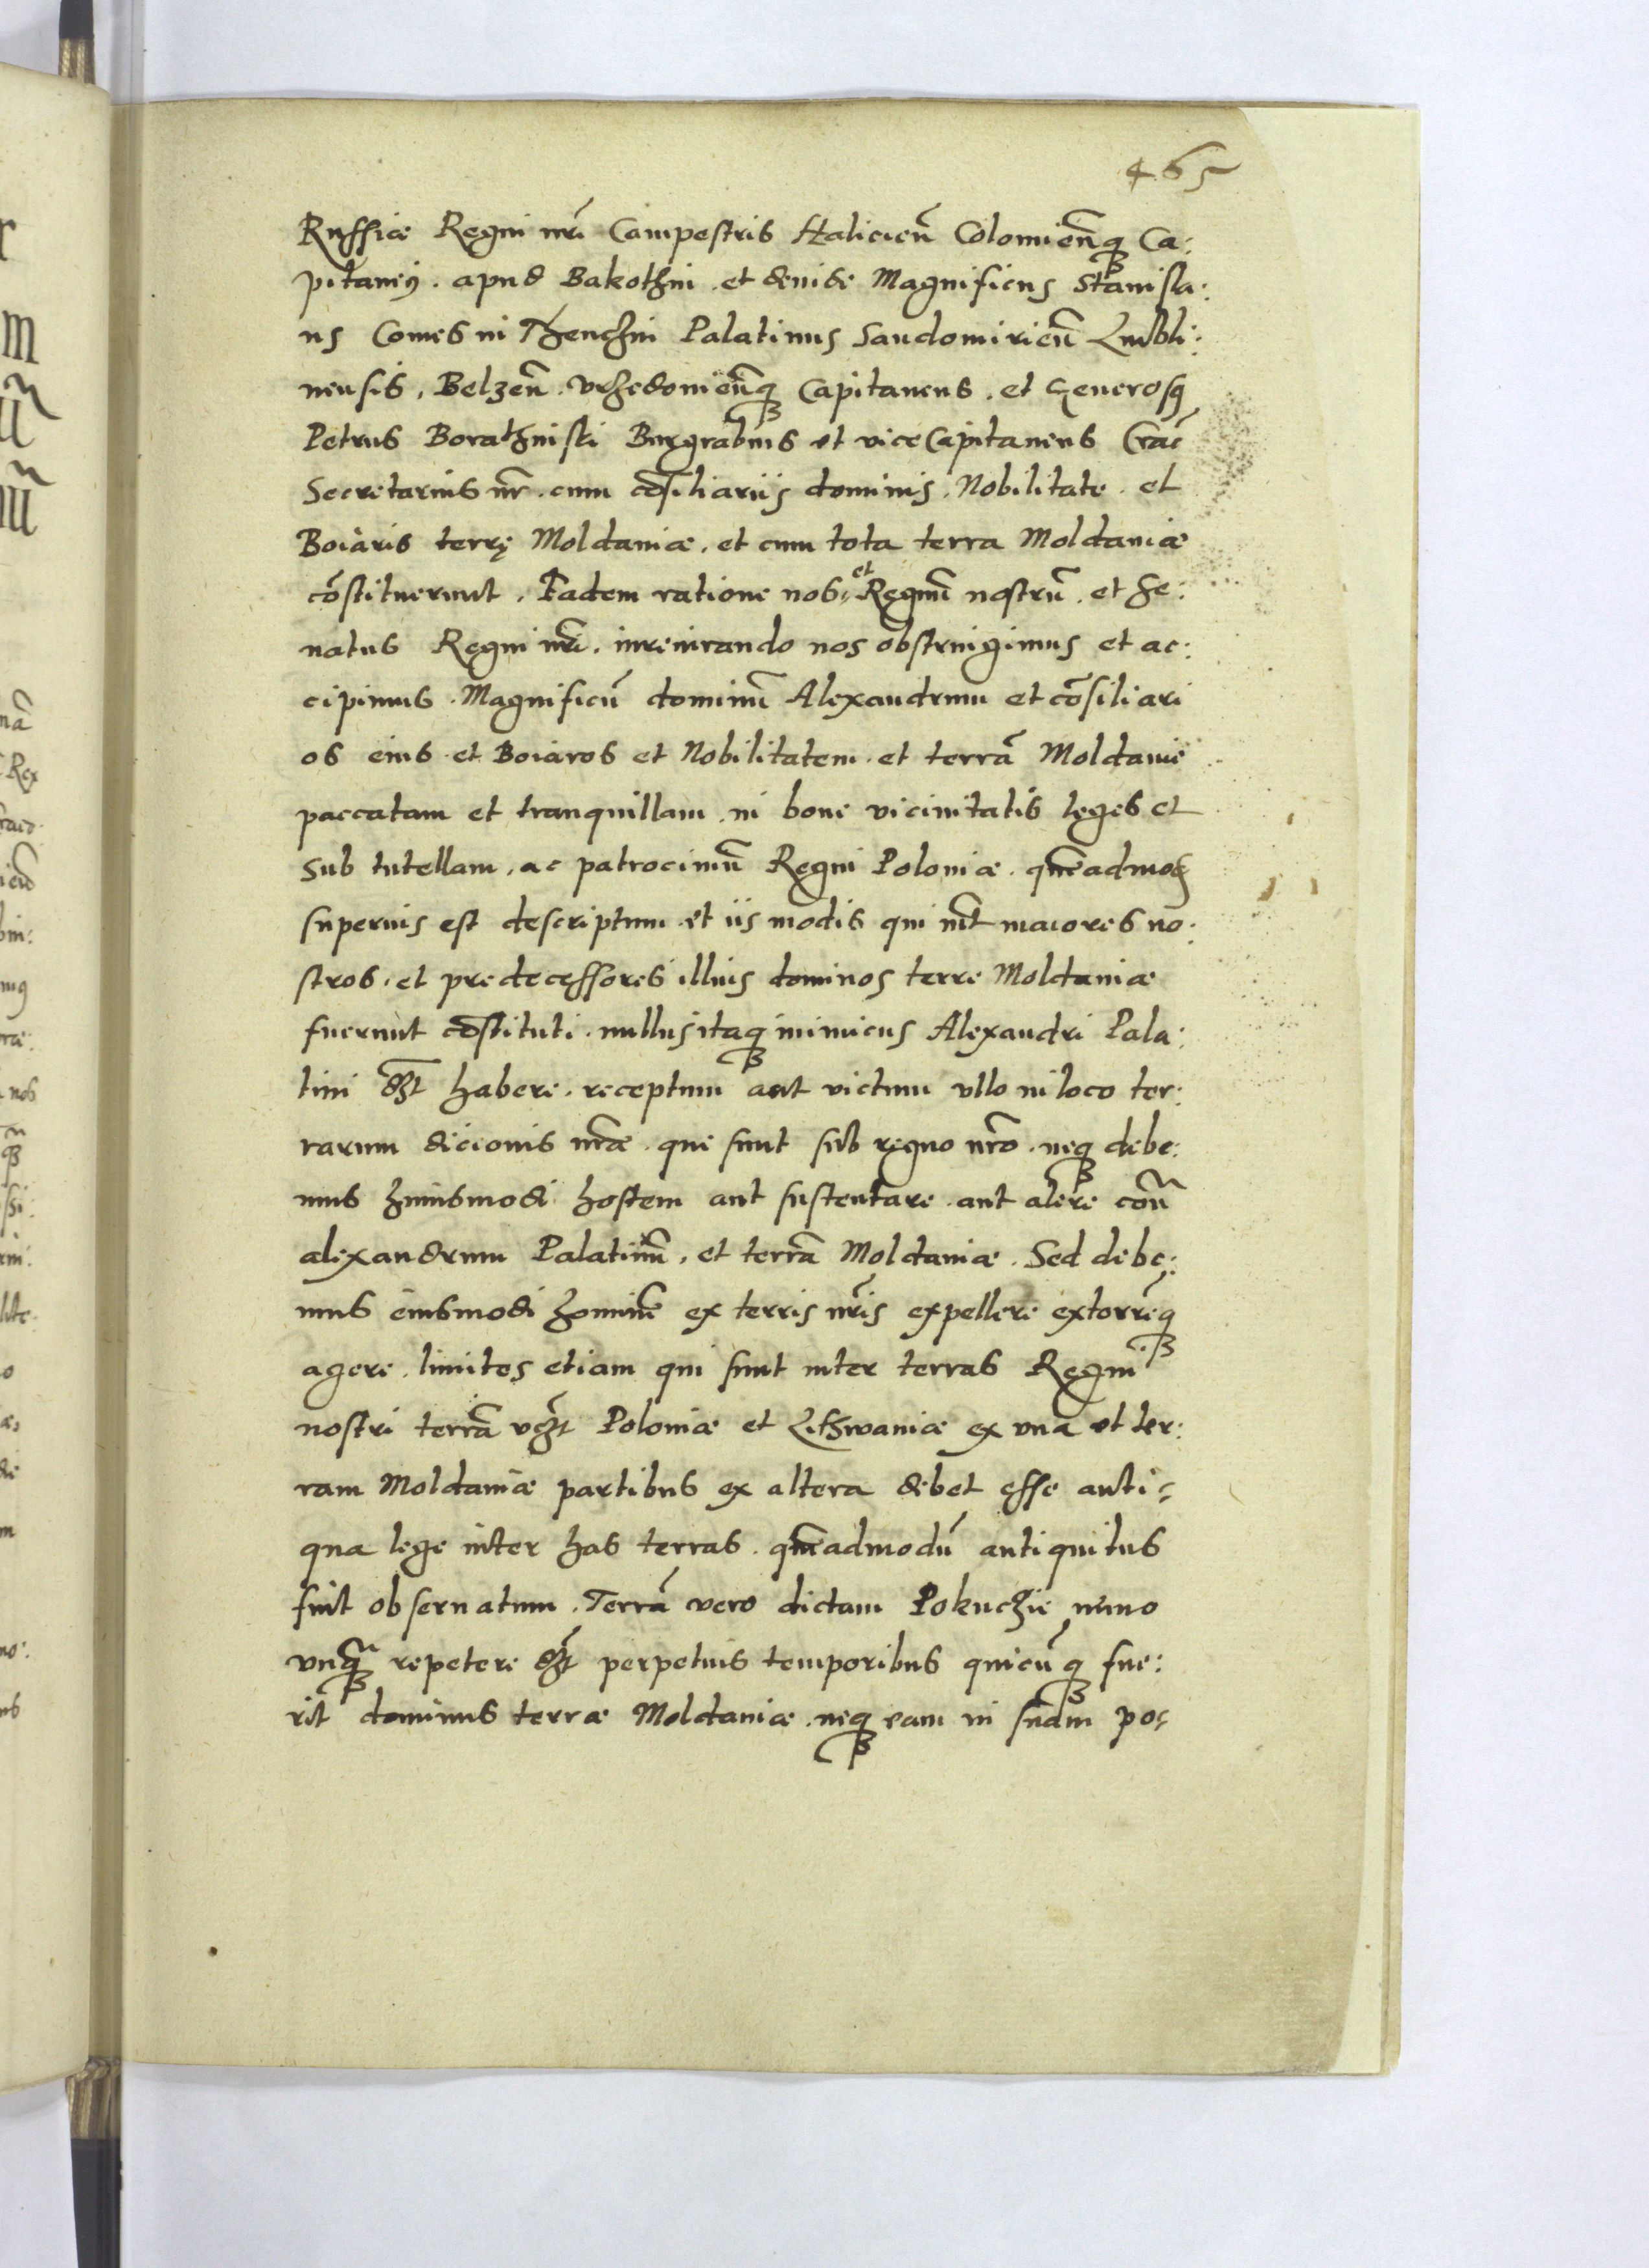 465
Russiæ Regni nrĩ Campestris Halicieñ Colomieñq₃ Ca:
pitaneꝰ . apud Bakothni . et deinde Magnificus Stanisla:
us Comes in Thenchin Palatinus Sandomirieñ Lubli:
nensis , Belzeñ . Vrzedoviieñq₃ Capitaneus . et Generosꝰ
Petrus Borathniski Burgrabius et vice Capitaneus Crac̃
Secretarius nr̃ . cum cõsiliariis dominis . Nobilitate . et
Boiaris terrę Moldaviæ . et cum tota terra Moldaviæ
cõstituerunt . Eadem ratione nos et Regnũ nostrũ . et se:
natus Regni nrĩ . iureiurando nos obstringimus et ac:
cipimus . Magnificũ dominũ Alexandrum et cõsiliari
os eius et Boiaros et Nobilitatem . et terrã Moldavie
paccatam et tranquillam . in bone vicinitatis leges et
sub tutellam . ac patrociniũ Regni Poloniæ . quẽadmod̃
superius est descriptum et iis modis qui int̃ maiores no:
stros . et predecessores illius dominos terre Moldaviæ
fuerunt cõstituti . nullus itaq₃ inimicus Alexandri Pala:
tini dz̃t habere . receptum aut victum vllo in loco ter:
rarum dicionis nræ̃ . que sunt sub regno nrõ . neq₃ debe:
mus huiusmodi hostem aut sustentare . aut alere cõñ
alexandrum Palatinũ . et terrã Moldaviæ . Sed debe:
mus eiusmodi hominẽ ex terris nrĩs expellere extorrẽq₃
agere . limites etiam qui sunt inter terras Regni
nostri terrã vz̃t Poloniæ et Lithwaniæ ex vna et ter:
ram Moldaviæ partibus ex altera debet esse anti:
qua lege inter has terras . quẽadmodũ antiquitus
fuit observatum . Terrã vero dictam Pokuczie nemo
vnq̃₃ repetere dz̃t perpetuis temporibus quicũq₃ fue:
rit dominus terræ Moldaviæ . neq₃ eam in suam po: